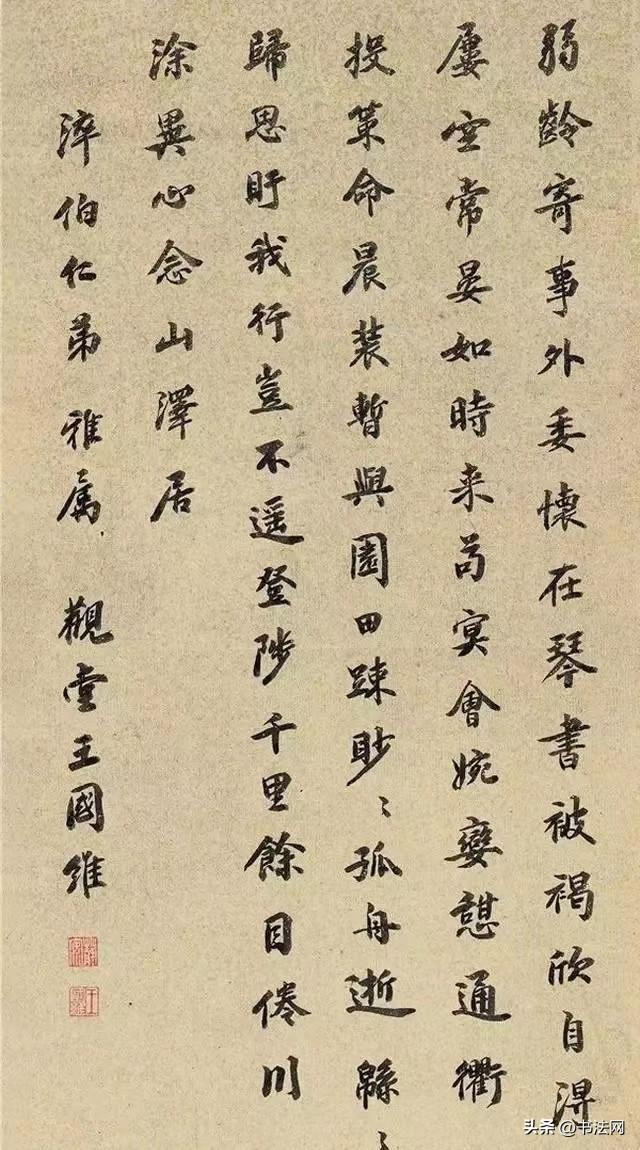 弱齡寄事外委懷在琴書被褐欣自得
屢空常晏如時来苟冥會婉孌憇通衢
投策命晨装暫與園田踈眇〻孤舟逝緜〻
歸思盱我行豈不遥登陟千里餘目倦川
涂異心念山澤居
淬伯仁弟 雅属 觀堂王國維
头条 @书法网